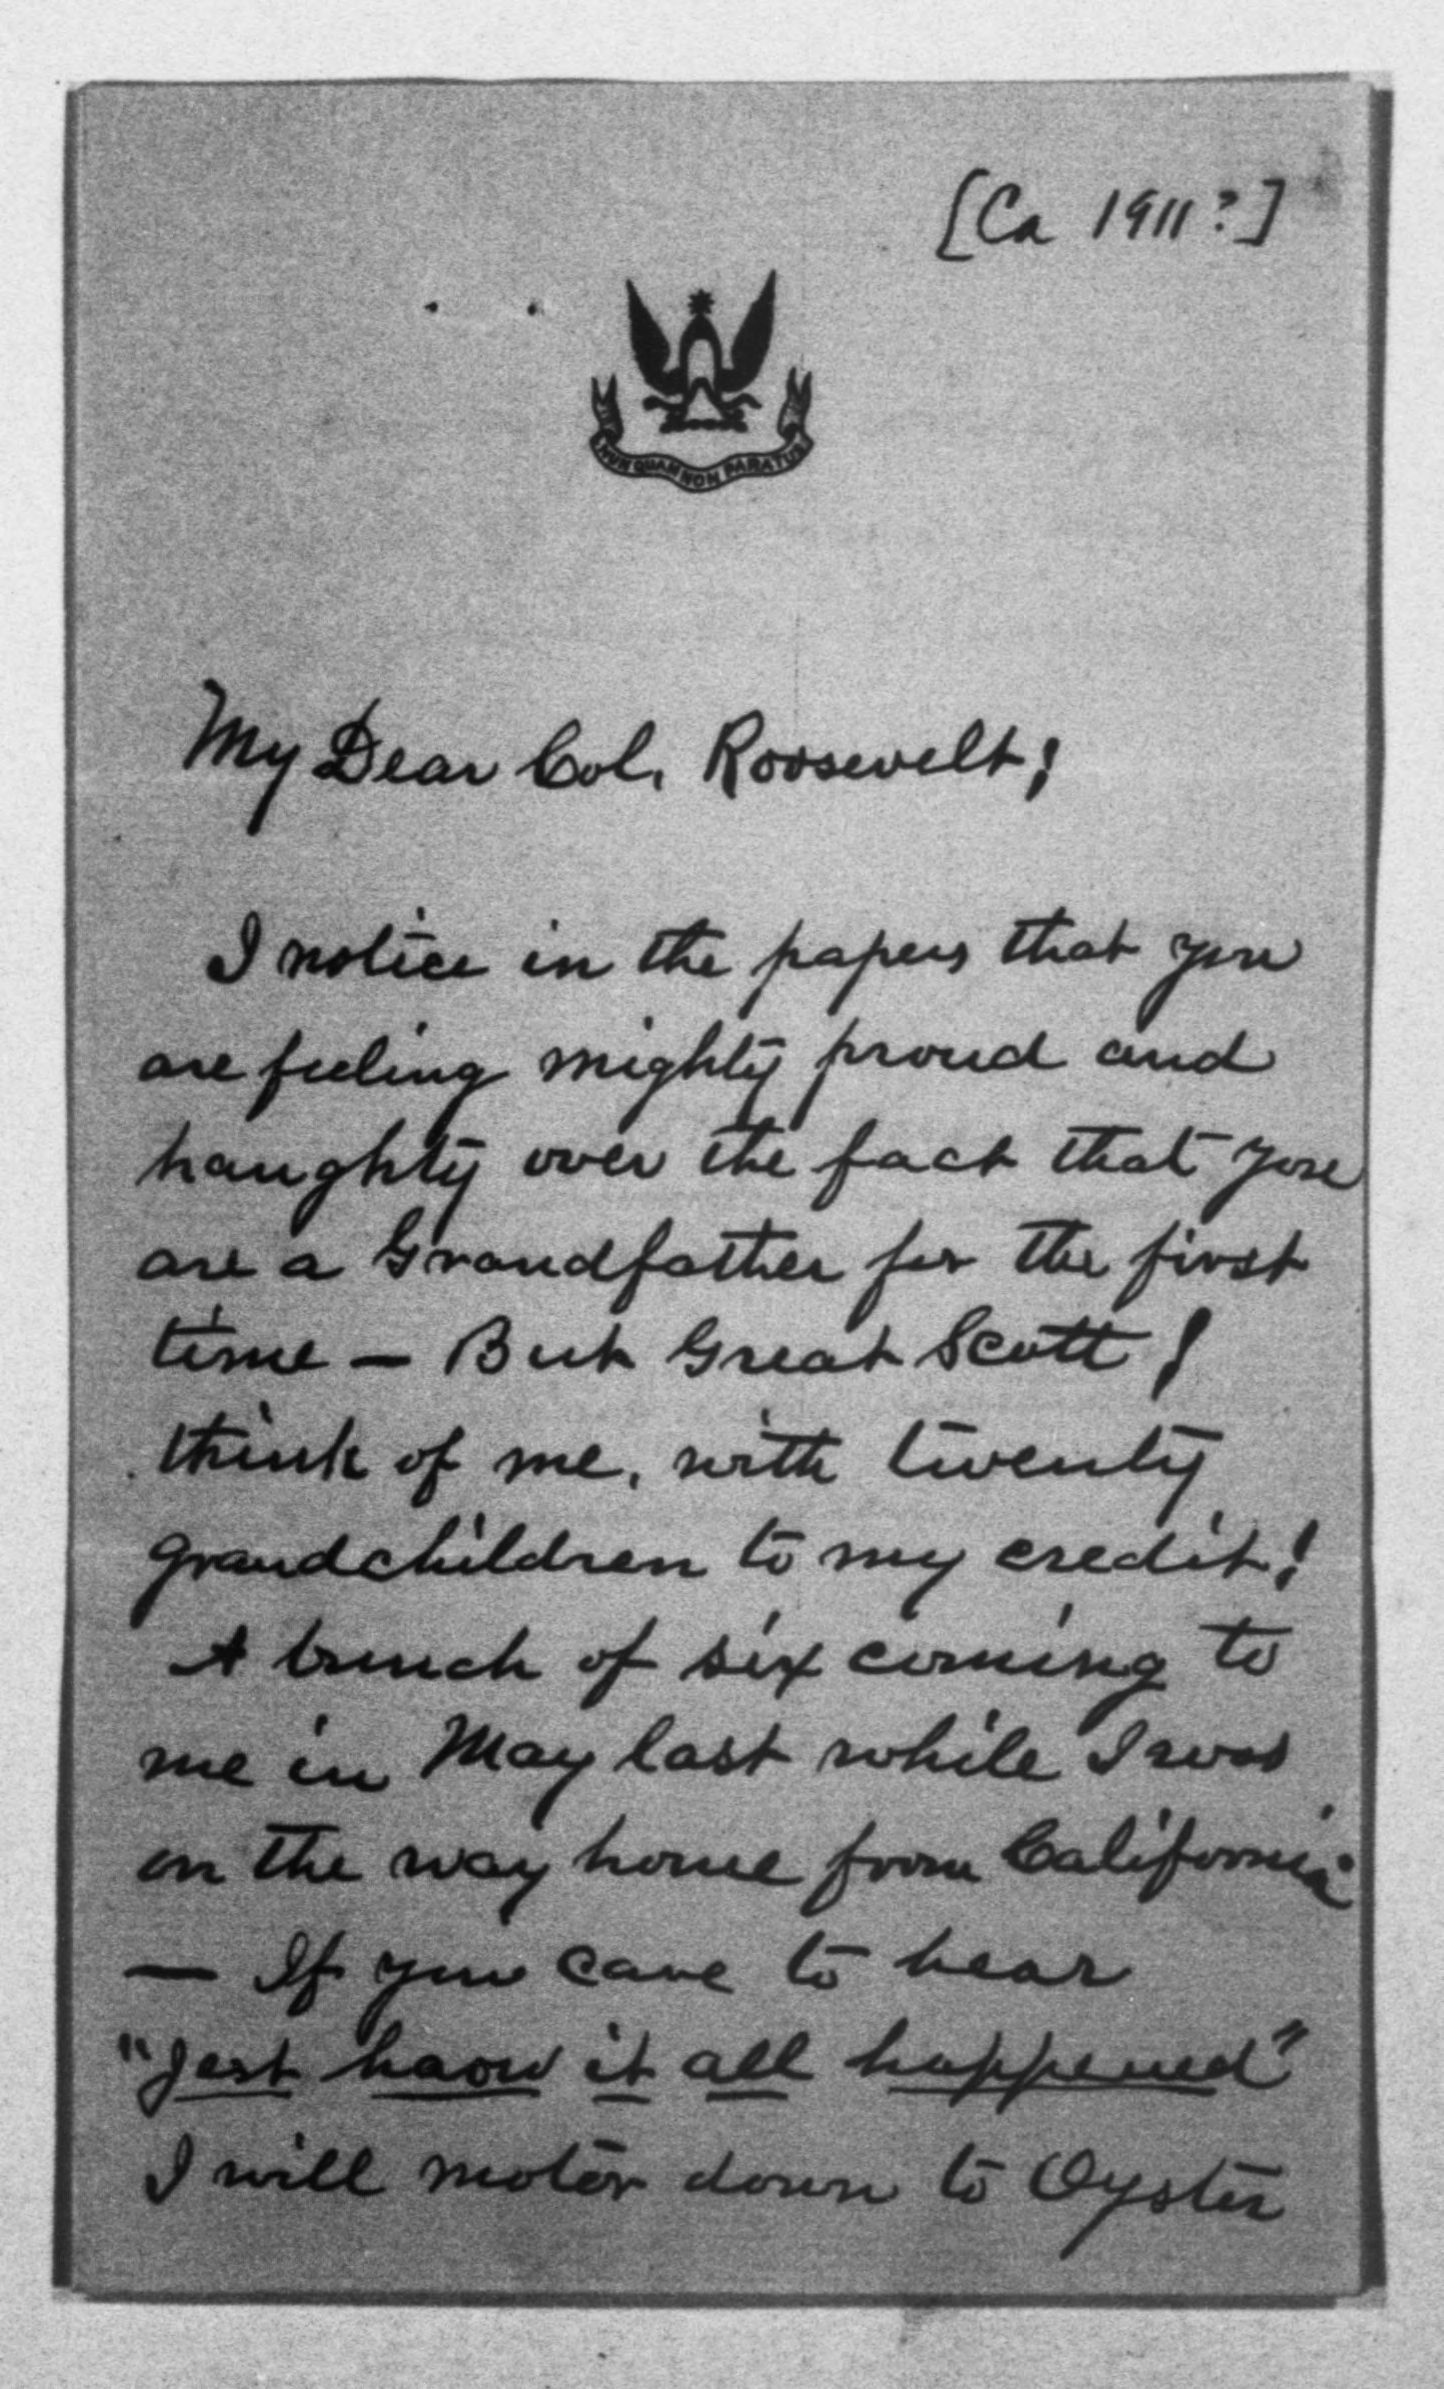 [Ca 1911?]
NUNQUAM NON PARATUS
My Dear Col. Roosevelt;
I notice in the papers that you
are feeling mighty proud and
haughty over the fact that you
are a Grandfather for the first
time — But Great Scott!
think of me, with twenty
grandchildren to my credit!
A bunch of six coming to
me in May last while I was
on the way home from California
— If you care to hear
"Jest haow it all happened"
I will motor down to Oyster